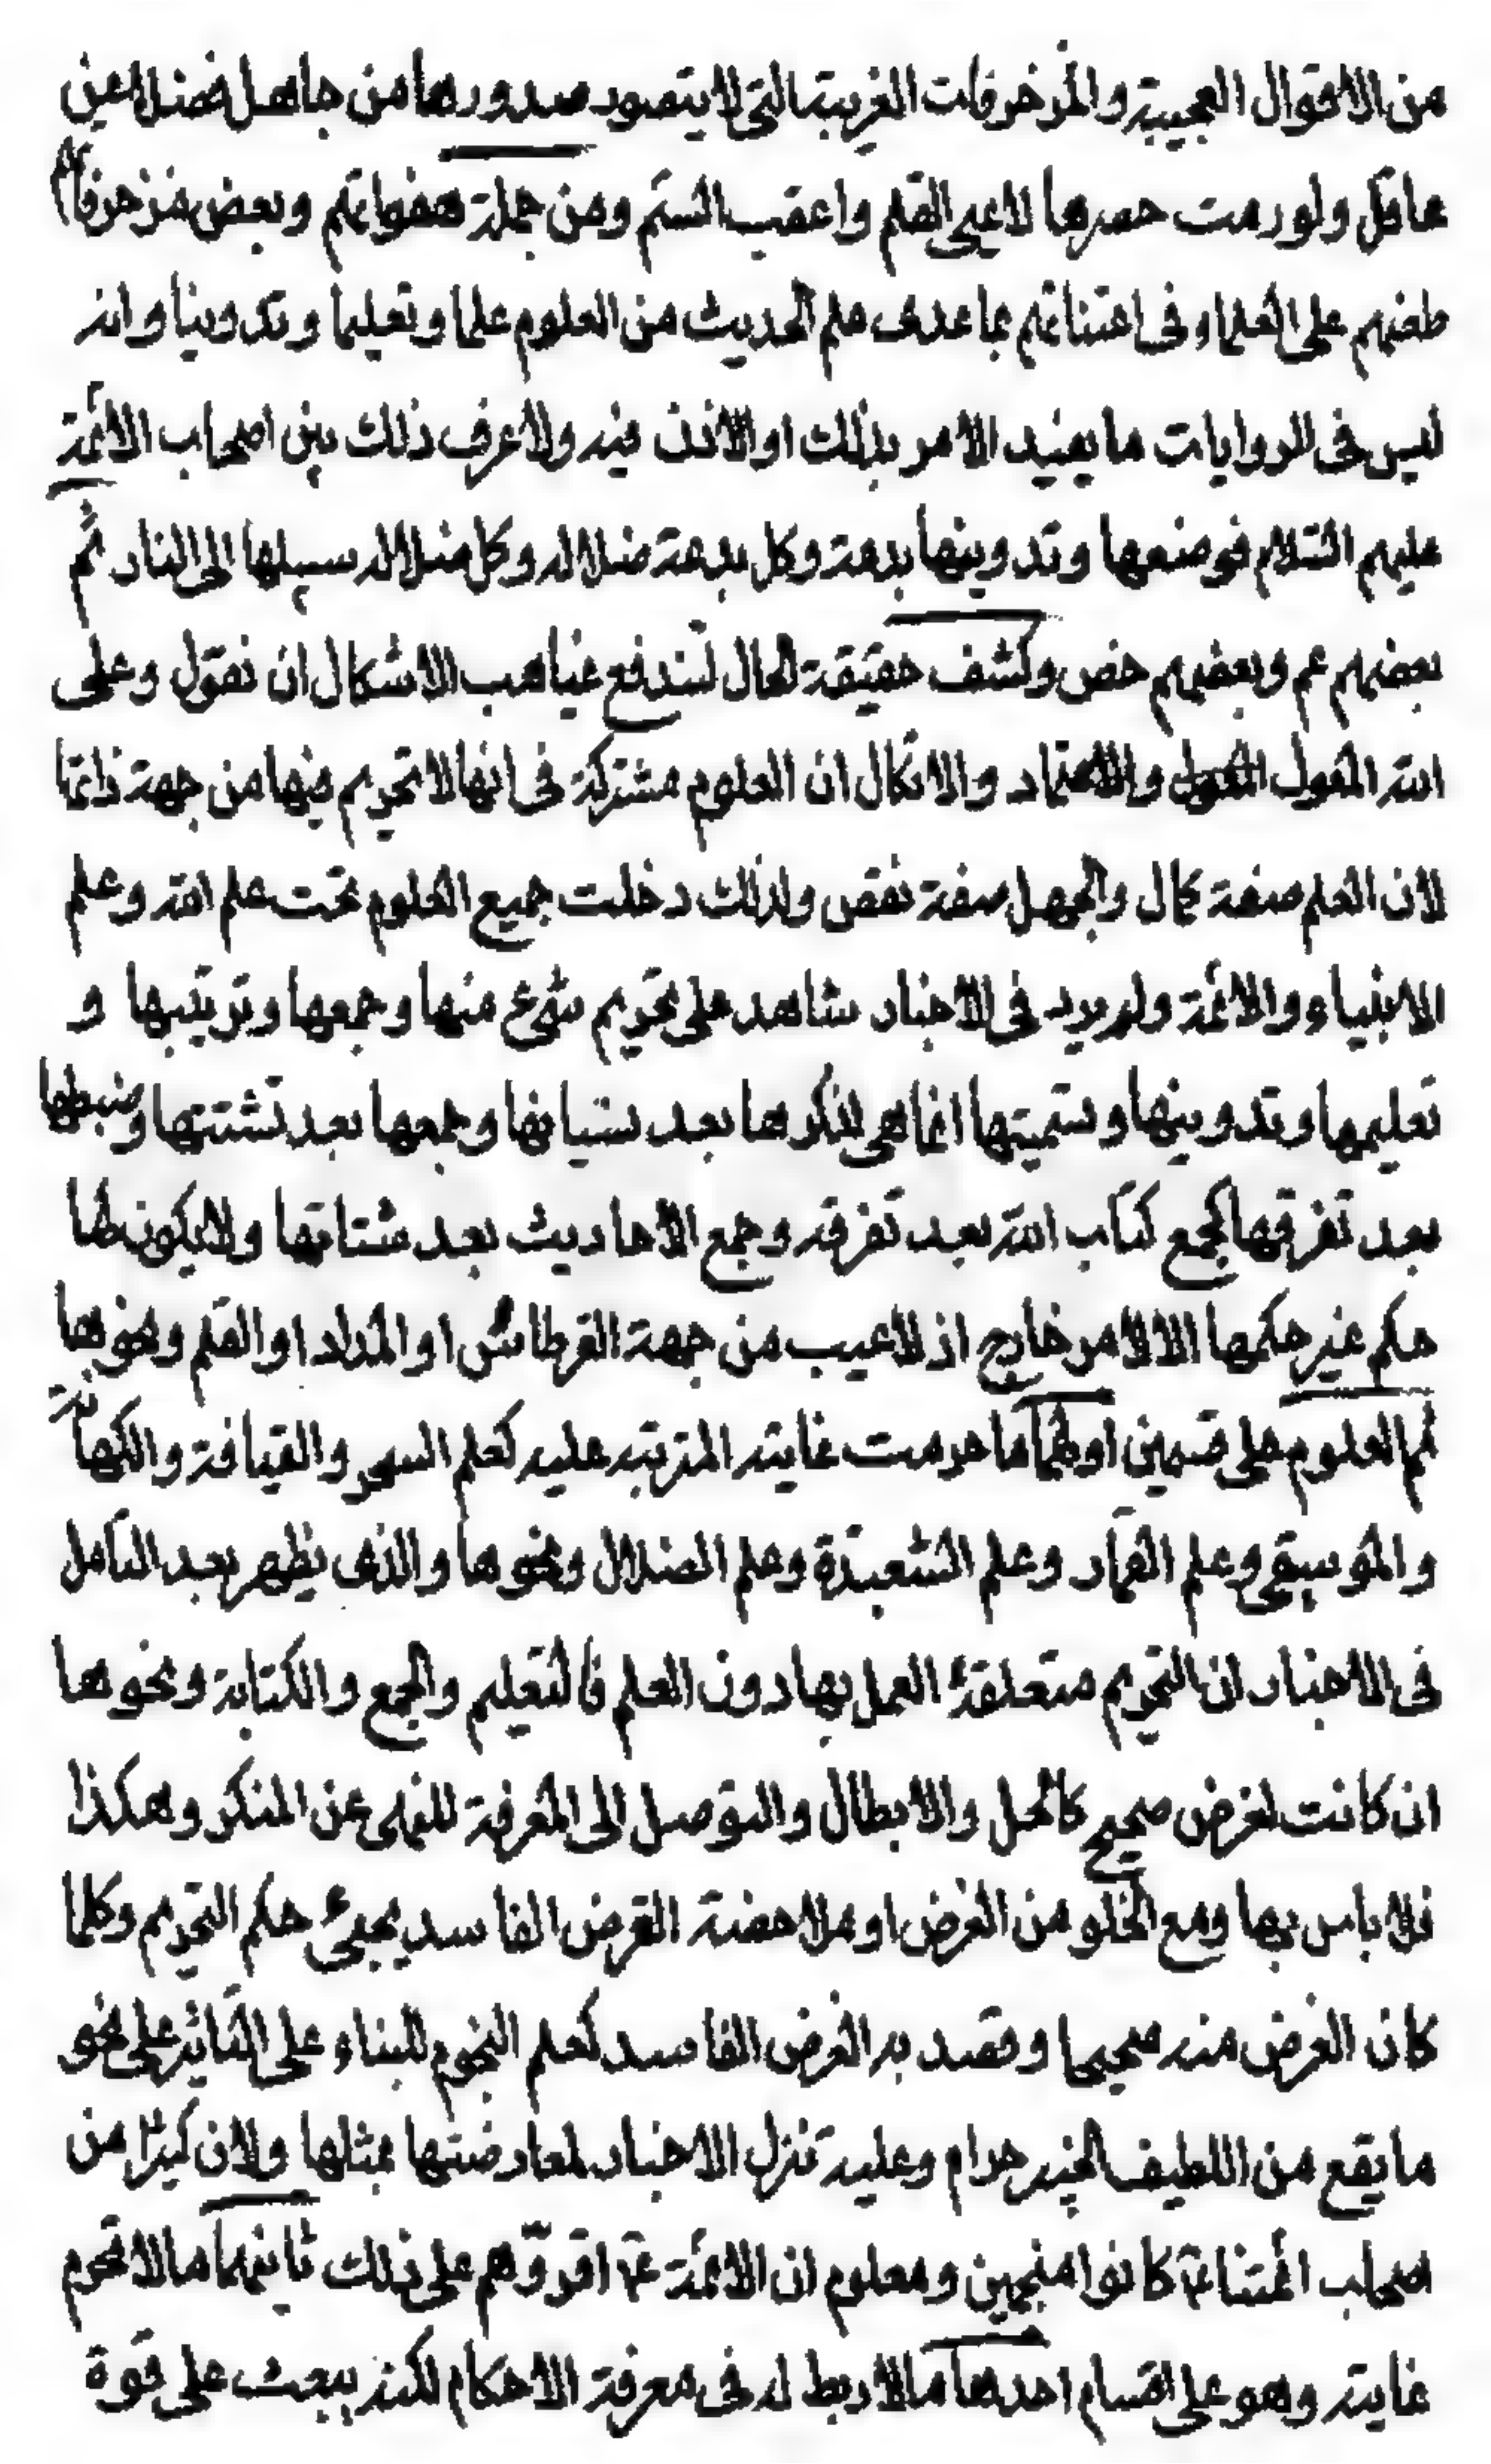 من الاقوال العجيبة والمزخرفات الغريبة التي لا يتصور صدورها من جاهل فضلا عن
عاقل ولو رمت حصرها لاعيى القلم واعقب السئم ومن جملة هفواتهم وبعض مزخرفاتهم
طعنهم على العلماء في اعتنائهم بما عدى علم الحديث من العلوم علما وتعليما وتدوينا وانه
ليس في الروايات ما يفيد الامر بذلك او الاذن فيه ولا عرف ذلك بين اصحاب الائمة
عليهم السلام فوضعها وتدوينها بدعة وكل بدعة ضلالة وكل ضلالة سبيلها الى النار ثم
بعضهم عم وبعضهم خص وكشف حقيقة الحال لتندفع غياهب الاشكال ان نقول وعلى
الله المعول والاعتماد والاتكال ان العلوم مشتركة في انها لا تحريم فيها من جهة ذاتها
لان العلم صفة كمال والجهل صفة نقص ولذلك دخلت جميع العلوم تحت علم الله وعلم
الانبياء والائمة ولم يرد في الاخبار شاهد على تحريم شيء منها وجمعها وترتيبها و
تعليمها وتدوينها وتسميتها انما هي لذكرها بعد نسيانها وجمعها بعد تشتتها وضبطها
بعد تفرقها كجمع كتاب الله بعد تفرقه وجمع الاحاديث بعد شتاتها ولا يكون لها
حكم غير حكمها الا لامر خارج اذ لا عيب من جهة القرطاس او المداد او القلم ونحوها
ثم العلوم على قسمين اولهما ما حرمت غايته المترتبة عليه كعلم السحر والقيافة والكهانة
والموسيقى وعلم القمار وعلم الشعبذة وعلم الضلال ونحوها والذي يظهر بعد التامل
في الاخبار ان التحريم متعلقة العمل بها دون العلم فالتعليم والجمع والكتابة ونحوها
ان كانت لغرض صحيح كالحل والابطال والتوصل الى المعرفة للنهى عن المنكر وهكذا
فلا باس بها ومع الخلو من الغرض او ملاحضة الغرض الفاسد يجيء حكم التحريم وكلما
كان الغرض منه صحيحا وقصد به الغرض الفاسد كعلم النجوم للبناء على التاثير على نحو
ما يقع من اللطيف الخبير حرام وعليه تنزل الاخبار لمعارضتها بمثلها ولان كثيرا من
صحاب أئمتنا ع كانوا منجمين ومعلوم ان الائمة ع اقروهم على ذلك ثانيهما ما لا تحرم
غايته وهو على اقسام احدها ما لا ربط له في معرفة الاحكام لكنه يبعث على قوة